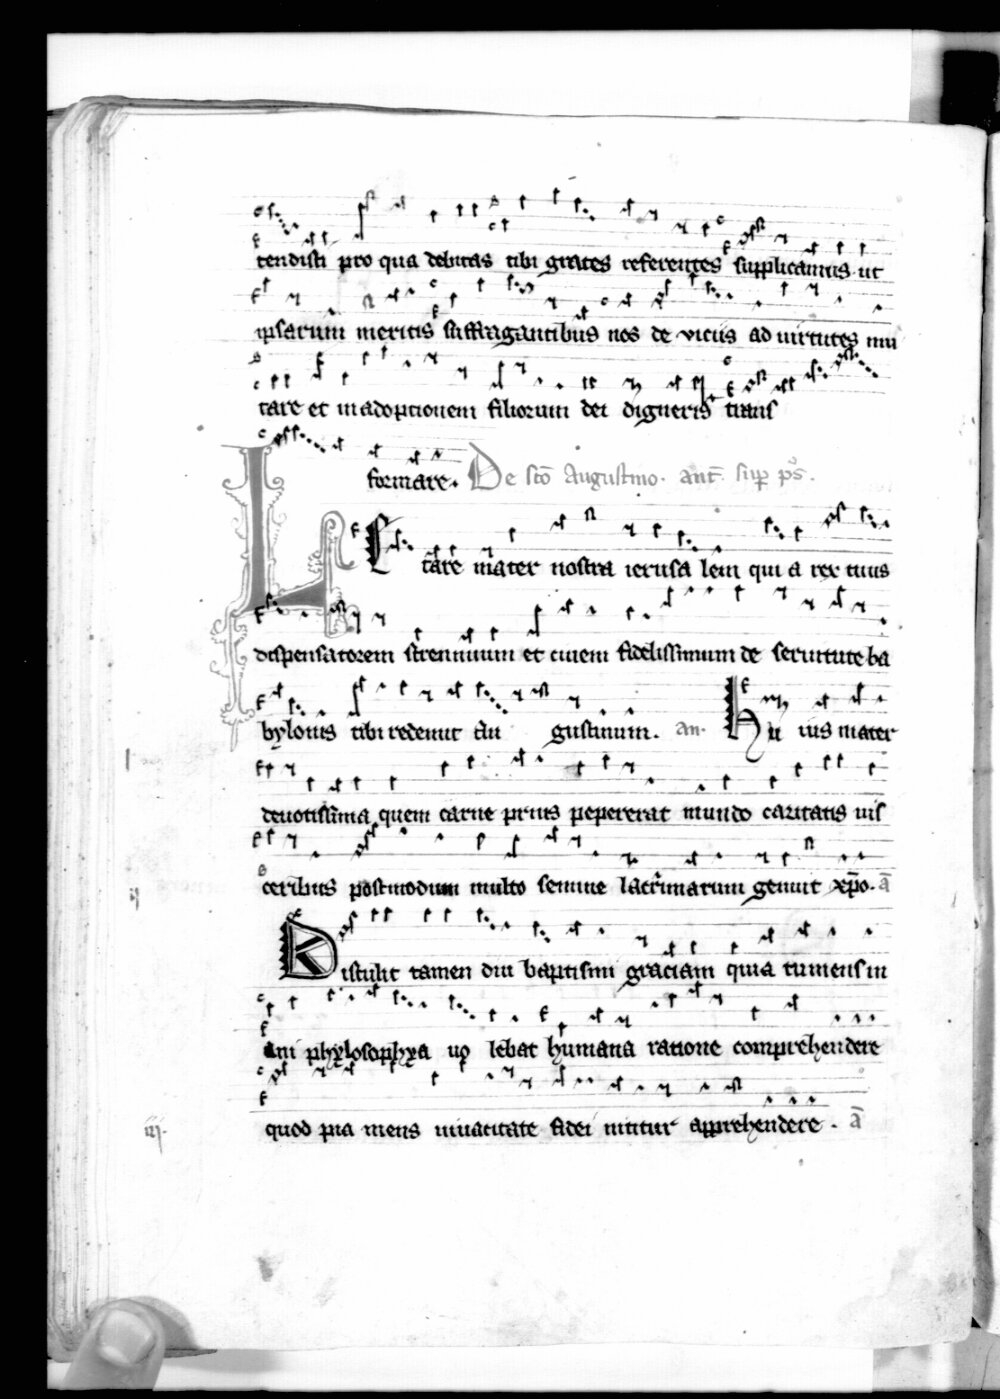 tendisti pro qua debitas tibi grates referentes supplicamus ut
ipsarum meritis suffragantibus nos de viciis ad uirtutes mu
tare et in adoptionem filiorum dei digneris trans
formare. De sc̄o Augustino. ant̄. sup ps̄.
LEtare mater nostra ierusalem qui a rex tuus
dispensatorem strennuum et ciuem fidelissimum de seruitute ba
bylonis tibi redemit Au gustinum. an. Hu ius mater
deuotissima quem carne prius pepererat mundo caritatis uis
ceribus postmodum multo semine lacrimarum genuit xp̄o. ā
Distulit tamen diu baptismi graciam quia tumens in
ani phylosophya uo lebat humana ratione comprehendere
quod pia mens uiuacitate fidei nititur apprehendere. ā
ij
iij.